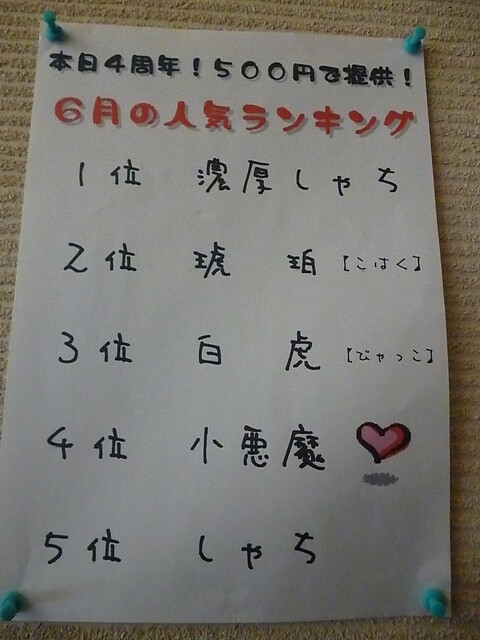 本日4周年！500円で提供！
6月の人気ランキング
1位 濃厚しゃち
2位 琥珀【こはく】
3位 白虎【びゃっこ】
4位 小悪魔
5位 しゃち